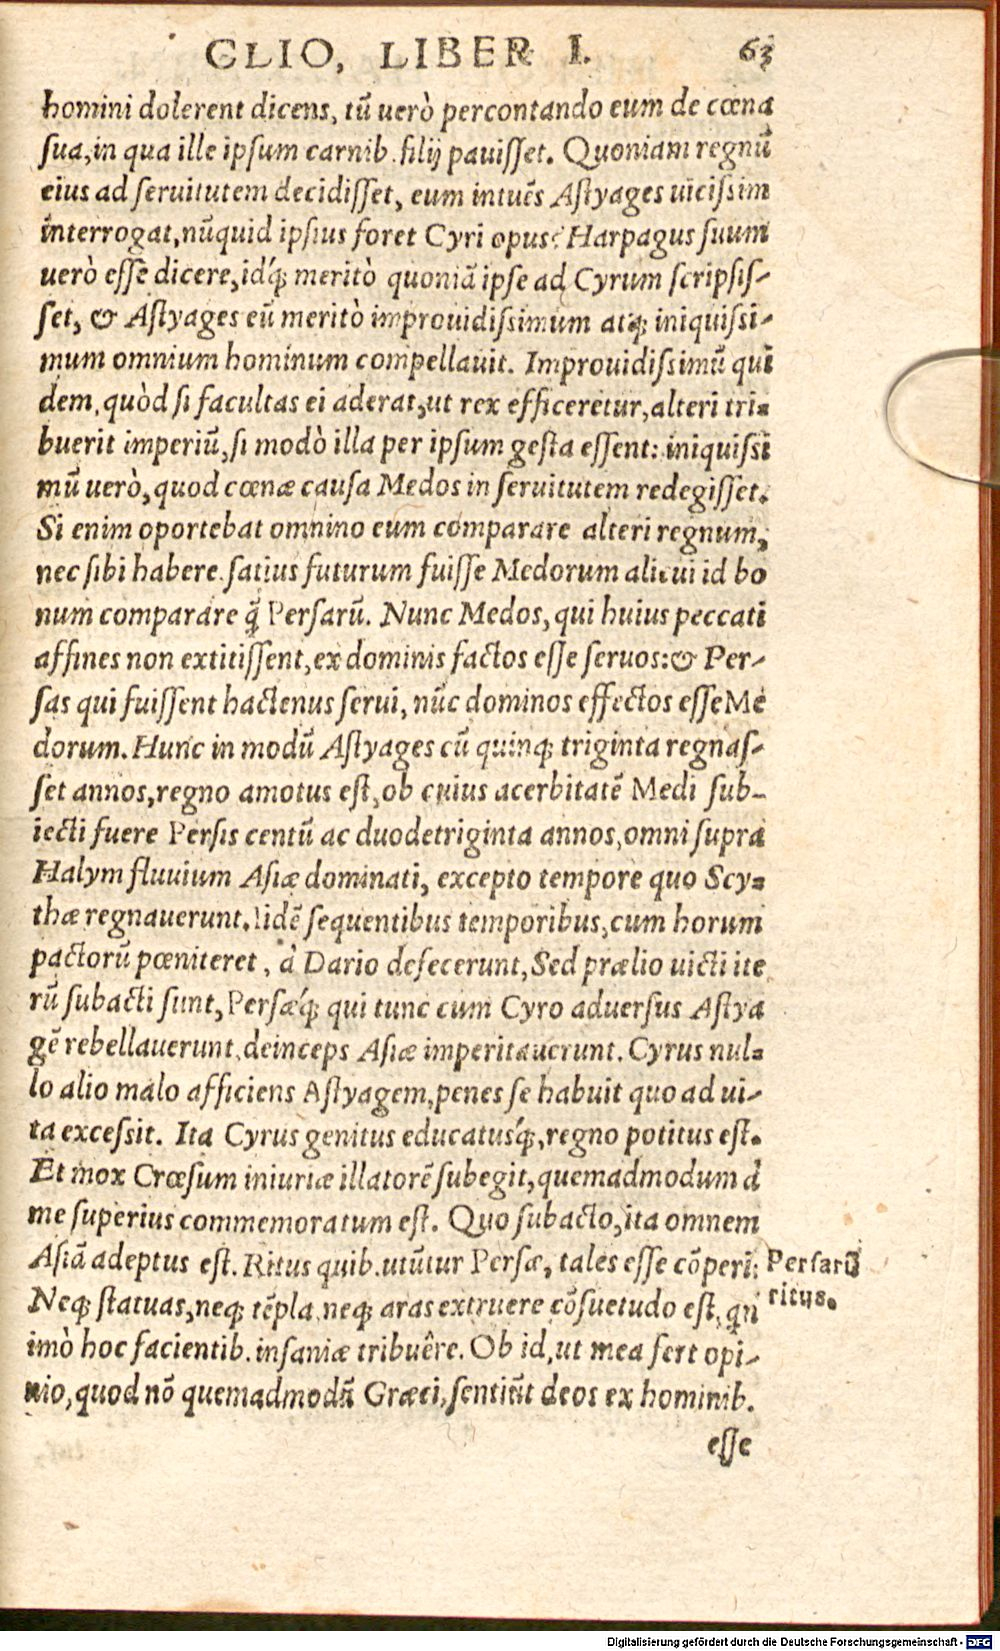 CLIO, LIBER I. 63
homini dolerent dicens, tũ uerò percontando eum de cœna
sua, in qua ille ipſum carnib. filij pauiſſet. Quoniam regnũ
eius ad ſeruitutem decidiſſet, eum intuẽs Aſtyages uiciſsim
interrogat, nũquid ipſius foret Cyri opus? Harpagus ſuum
uerò eſſe dicere, idq́; meritò quoniã ipſe ad Cyrum ſcripſiſ-
ſet, & Aſtyages eũ meritò improuidiſsimum atq; iniquiſsi-
mum omnium hominum compellauit. Improuidiſsimũ qui
dem, quòd ſi facultas ei aderat, ut rex efficeretur, alteri tri=
buerit imperiũ, ſi modò illa per ipſum geſta eſſent: iniquiſsi
mũ uerò, quod cœnæ cauſa Medos in ſeruitutem redegiſſet.
Si enim oportebat omnino eum comparare alteri regnum,
nec ſibi habere. ſatius futurum fuiſſe Medorum alicui id bo
num comparare q̃ Perſarũ. Nunc Medos, qui huius peccati
affines non extitiſſent, ex dominis factos eſſe ſeruos: & Per-
ſas qui fuiſſent hactenus ſerui, nũc dominos effectos eſſe Me
dorum. Hunc in modũ Aſtyages cũ quinq; triginta regnaſ-
ſet annos, regno amotus eſt, ob cuius acerbitatẽ Medi ſub-
iecti fuere Perſis centũ ac duodetriginta annos, omni ſupra
Halym fluuium Aſiæ dominati, excepto tempore quo Scy=
thæ regnauerunt. Iidẽ ſequentibus temporibus, cum horum
pactorũ pœniteret, à Dario defecerunt, Sed prælio uicti ite
rũ ſubacti ſunt, Perſæq́; qui tunc cum Cyro aduerſus Aſtya
gẽ rebellauerunt, deinceps Aſiæ imperitauerunt. Cyrus nul=
lo alio malo afficiens Aſtyagem, penes ſe habuit quo ad ui-
ta exceſsit. Ita Cyrus genitus educatusq́;, regno potitus eſt.
Et mox Crœſum iniuriæ illatorẽ ſubegit, quemadmodum à
me ſuperius commemoratum eſt. Quo ſubacto, ita omnem
Aſiã adeptus eſt. Ritus quib. utũtur Perſæ, tales eſſe cõperi:
Perſarũ
ritus.
Neq; ſtatuas, neq; tẽpla, neq; aras extruere cõſuetudo eſt, qui
imò hoc facientib. inſaniæ tribuêre. Ob id, ut mea fert opi-
nio, quod nõ quemadmodũ Græci, ſentiũt deos ex hominib.
eſſe
Digitalisierung gefördert durch die Deutsche Forschungsgemeinschaft - DFG